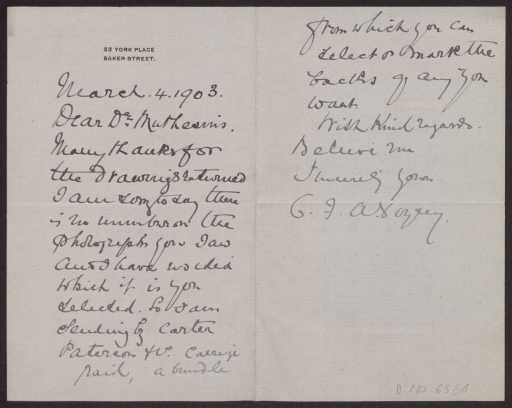 23 YORK PLACE
BAKER STREET.
March. 4. 1903.
Dear Dr. Muthesius.
Many thanks for
the Drawings returned
I am sorry to say there
is no number on the
Photographs you saw
and I have no idea
which it is you
selected. So I am
sending by Carter
Paterson & Co. Carriage
paid, a bundle
from which you can
select or mark the
backs of any you
want
With Kind regards.
Believe me
Sincerely yours
C. F. A Voysey.